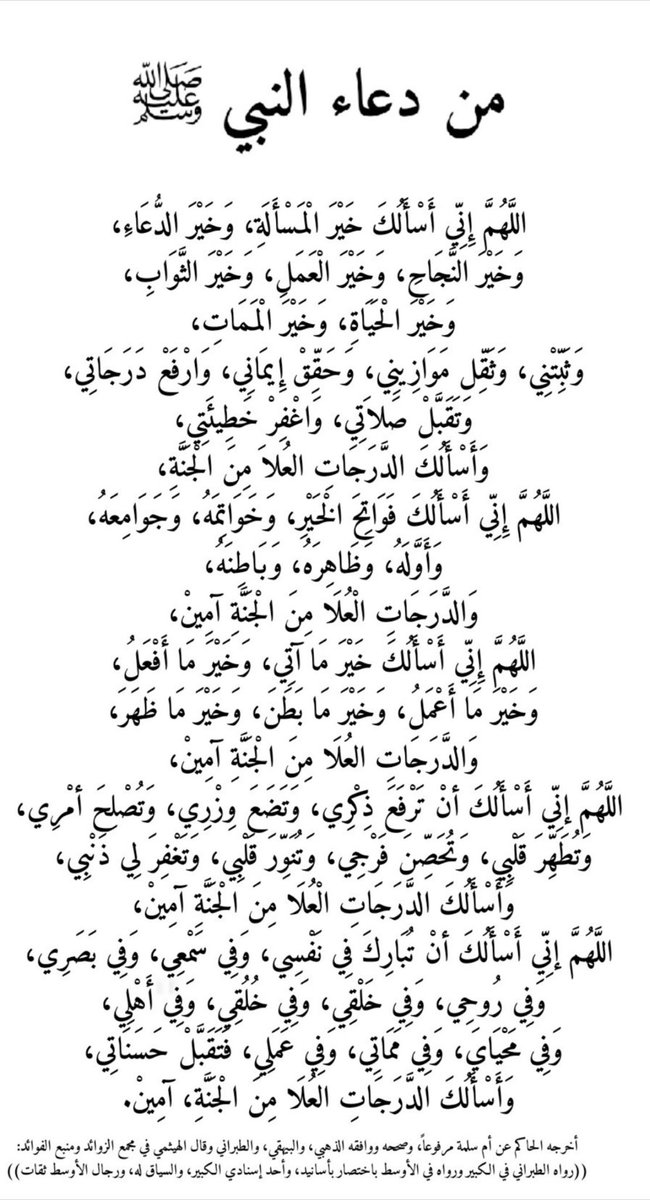 من دعاء النبي ﷺ
اللَّهُمَّ إِنِّي أَسْأَلُكَ خَيْرَ الْمَسْأَلَةِ، وَخَيْرَ الدُّعَاءِ،
وَخَيْرَ النَّجَاحِ، وَخَيْرَ الْعَمَلِ، وَخَيْرَ الثَّوَابِ،
وَخَيْرَ الْحَيَاةِ، وَخَيْرَ الْمَمَاتِ،
وَثَبِّتْنِي، وَثَقِّل مَوَازِينِي، وَحَقِّقْ إِيمَانِي، وَارْفَعْ دَرَجَاتِي،
وَتَقَبَّلْ صَلاَتِي، وَاغْفِرْ خَطِيئَتِي،
وَأَسْأَلُكَ الدَّرَجَاتِ العُلاَ مِنَ الْجَنَّةِ،
اللَّهُمَّ إِنِّي أَسْأَلُكَ فَوَاتِحَ الْخَيْرِ، وَخَوَاتِمَهُ، وَجَوَامِعَهُ،
وَأَوَّلَهُ، وَظَاهِرَهُ، وَبَاطِنَهُ،
وَالدَّرَجَاتِ الْعُلَا مِنَ الْجَنَّةِ آمِينْ،
اللَّهُمَّ إِنِّي أَسْأَلُكَ خَيْرَ مَا آتِي، وَخَيْرَ مَا أَفْعَلُ،
وَخَيْرَ مَا أَعْمَلُ، وَخَيْرَ مَا بَطَنَ، وَخَيْرَ مَا ظَهَرَ،
وَالدَّرَجَاتِ العُلَا مِنَ الْجَنَّةِ آمِينْ،
اللَّهُمَّ إِنِّي أَسْأَلُكَ أنْ تَرْفَعَ ذِكْرِي، وَتَضَعَ وِزْرِي، وَتُصْلِحَ أمْرِي،
وَتُطَهِّرَ قَلْبِي، وَتُحَصِّنَ فَرْجِي، وَتُنَوِّرَ قَلْبِي، وَتَغْفِرَ لِي ذَنْبِي،
وَأَسْأَلُكَ الدَّرَجَاتِ الْعُلَا مِنَ الْجَنَّةِ آمِينْ،
اللَّهُمَّ إنِّي أَسْأَلُكَ أنْ تُبَارِكَ فِي نَفْسِي، وَفِي سَمْعِي، وَفِي بَصَرِي،
وَفِي رُوحِي، وَفِي خَلْقِي، وَفِي خُلُقِي، وَفِي أَهْلِي،
وَفِي مَحْيَايَ، وَفِي مَمَاتِي، وَفِي عَمَلِي، فَتَقَبَّلْ حَسَنَاتِي،
وَأَسْأَلُكَ الدَّرَجَاتِ العُلَا مِنَ الْجَنَّةِ، آمِينْ.
أخرجه الحاكم عن أم سلمة مرفوعاً، وصححه ووافقه الذهبي، والبيهقي، والطبراني وقال الهيثمي في مجمع الزوائد ومنبع الفوائد:
((رواه الطبراني في الكبير ورواه في الأوسط باختصار بأسانيد، وأحد إسنادي الكبير، والسياق له، ورجال الأوسط ثقات))